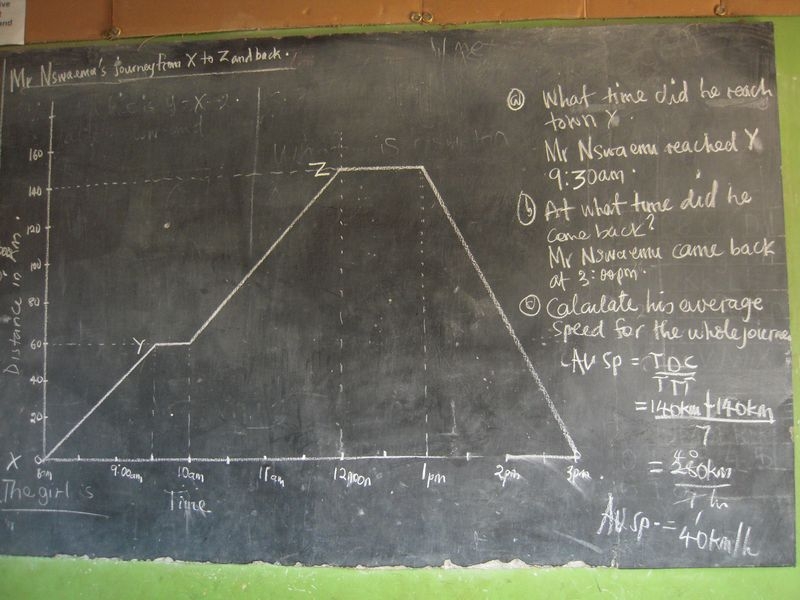 Mr Nswaemu's Journey from X to Z and back.
160
140
120
100
80
60
40
20
0
Distance in Km.
X
Y
Z
8am
9:00am
10am
11am
12noon
1pm
2pm
3pm
Time
The girl is
(a) What time did he reach
town Y.
Mr Nswaemu reached Y
9:30am.
(b) At what time did he
come back?
Mr Nswaemu came back
at 3:00pm.
(c) Calculate his average
speed for the whole journey
Av Sp = TDC
TTT
= 140km + 140km
7
= 40
280km
7 hr
1
Av Sp = 40km/h